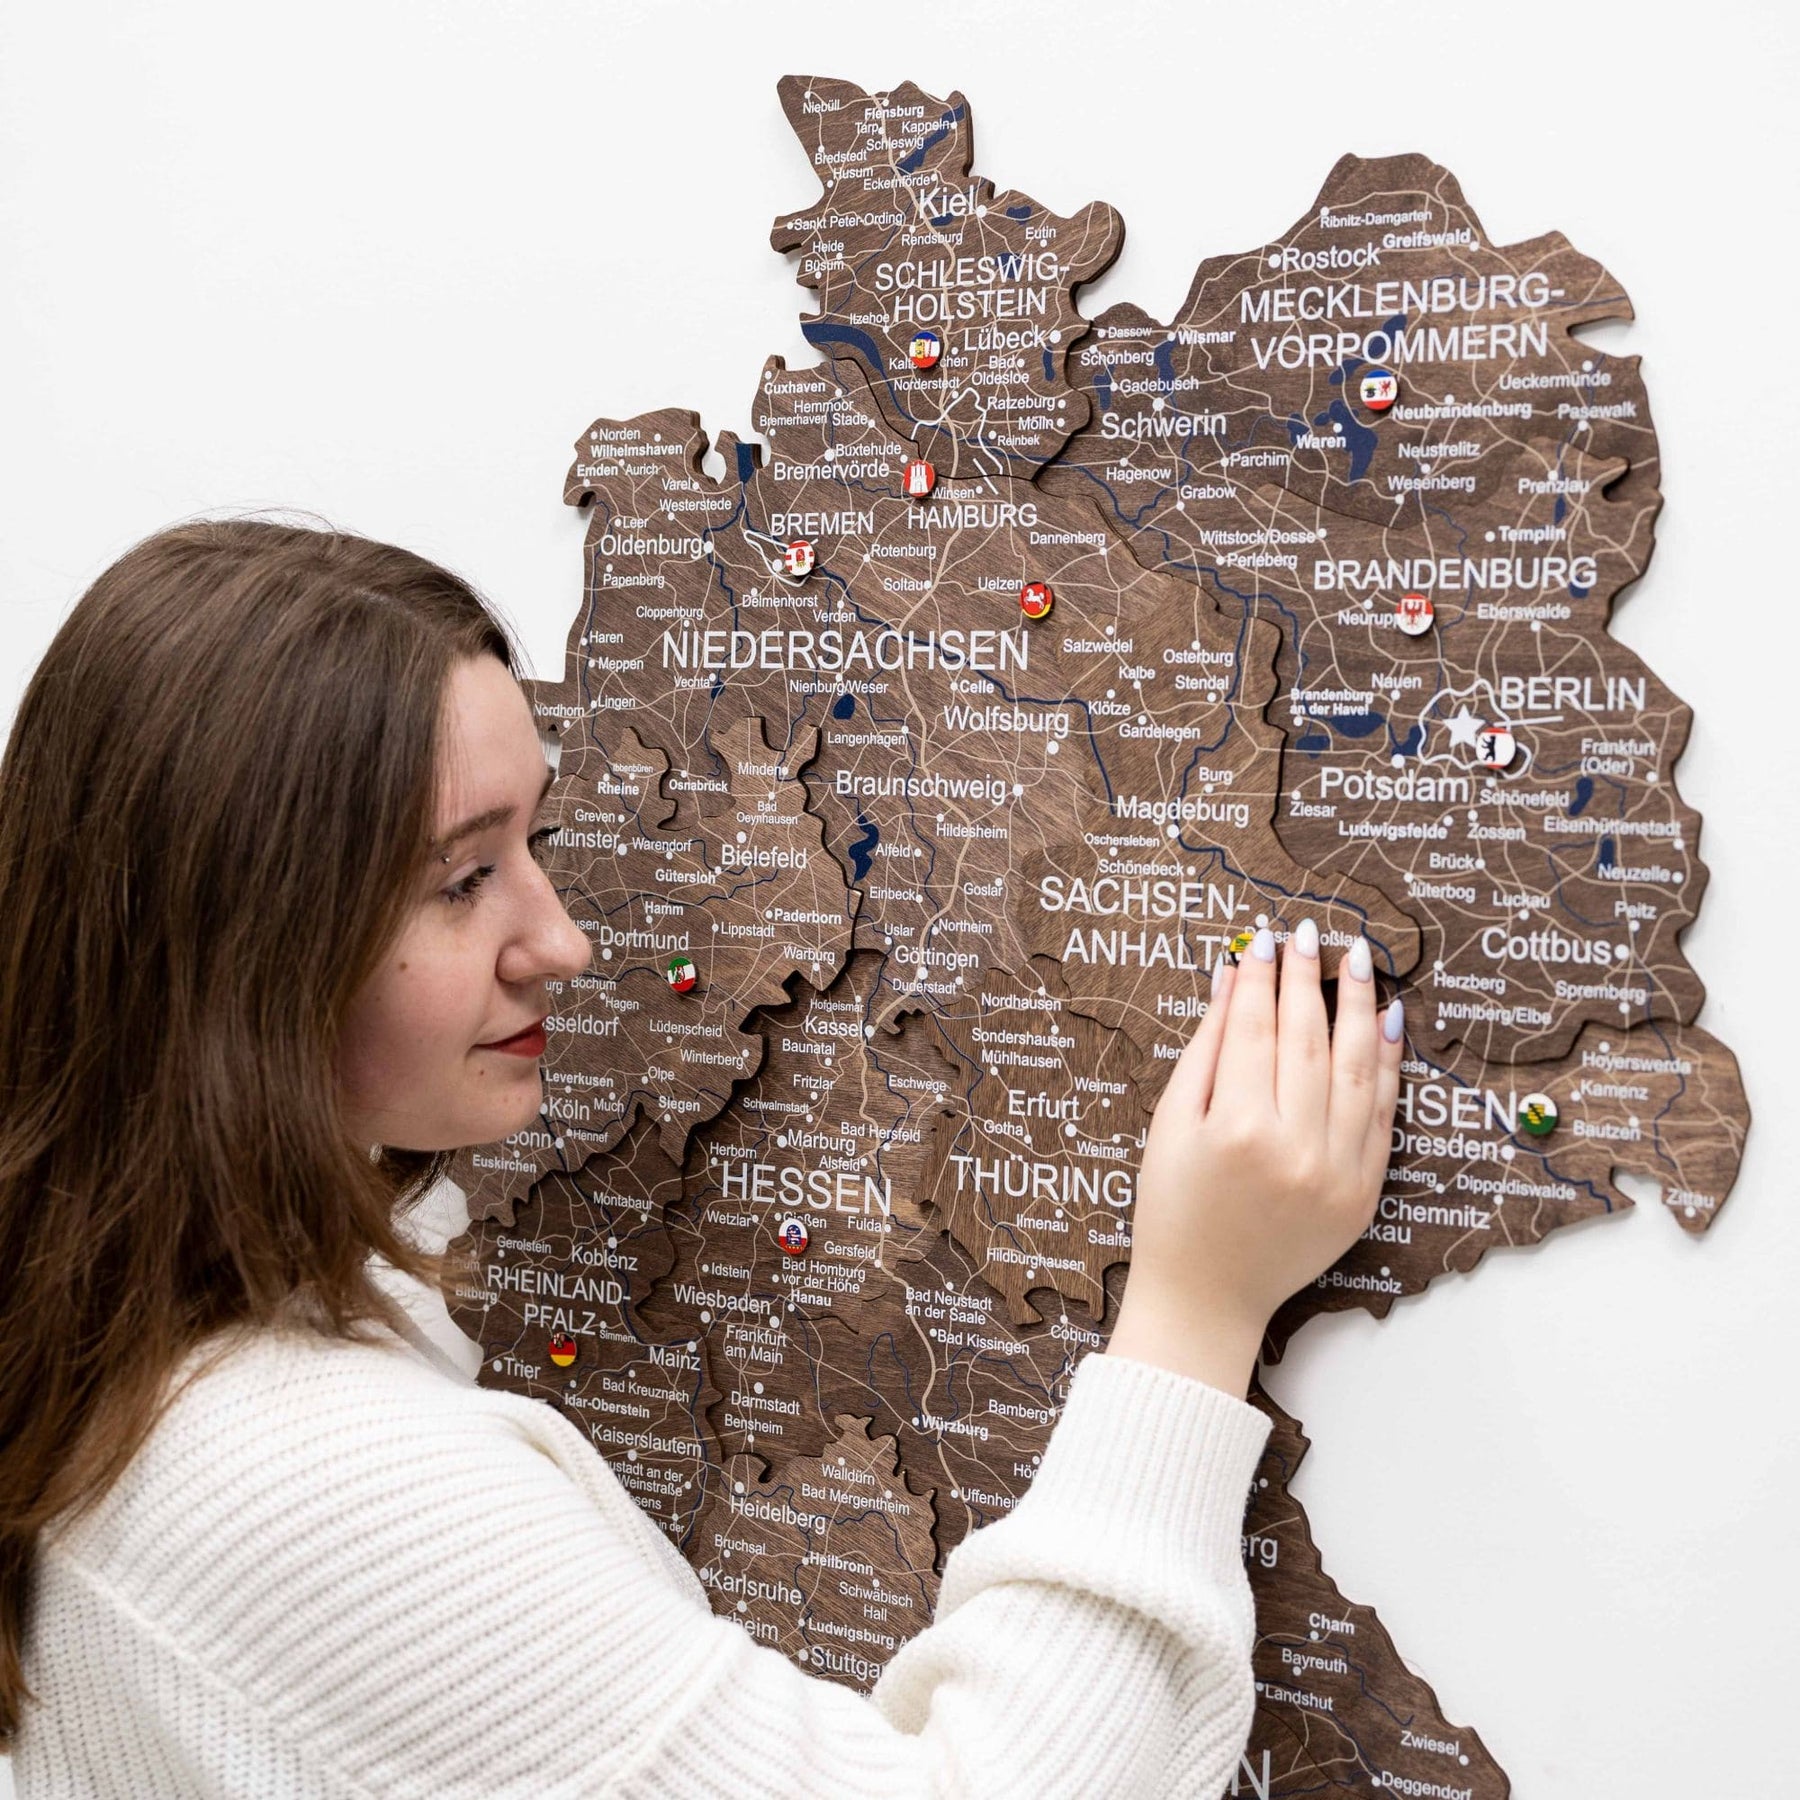 Niebüll
Flensburg
Tarp
Kappeln
Schleswig
Bredstedt
Husum
Eckernförde
Kiel
Sankt Peter-Ording
Rendsburg
Eutin
Heide
Büsum
SCHLESWIG-
HOLSTEIN
Itzehoe
Lübeck
Bad
Oldesloe
Norderstedt
Ratzeburg
Mölln
Reinbek
Ribnitz-Damgarten
Rostock
Greifswald
MECKLENBURG-
VORPOMMERN
Dassow
Wismar
Schönberg
Gadebusch
Ueckermünde
Schwerin
Neubrandenburg
Pasewalk
Waren
Neustrelitz
Parchim
Hagenow
Wesenberg
Prenzlau
Grabow
Cuxhaven
Hemmoor
Bremerhaven
Stade
Buxtehude
Bremervörde
Winsen
Norden
Wilhelmshaven
Emden
Aurich
Varel
Westerstede
Leer
BREMEN
HAMBURG
Dannenberg
Oldenburg
Rotenburg
Papenburg
Soltau
Uelzen
Delmenhorst
Cloppenburg
Verden
Wittstock/Dosse
Perleberg
Templin
BRANDENBURG
Eberswalde
Haren
NIEDERSACHSEN
Salzwedel
Osterburg
Meppen
Vechta
Nienburg/Weser
Celle
Kalbe
Stendal
Nauen
BERLIN
Brandenburg
an der Havel
Nordhorn
Lingen
Wolfsburg
Klötze
Gardelegen
Langenhagen
Frankfurt
(Oder)
Ibbenbüren
Rheine
Osnabrück
Minden
Braunschweig
Burg
Potsdam
Schönefeld
Bad
Oeynhausen
Magdeburg
Ziesar
Greven
Münster
Warendorf
Hildesheim
Ludwigsfelde
Zossen
Eisenhüttenstadt
Bielefeld
Alfeld
Oschersleben
Schönebeck
Brück
Neuzelle
Gütersloh
Einbeck
Goslar
SACHSEN-
ANHALT
Jüterbog
Luckau
Peitz
Hamm
Paderborn
Lippstadt
Uslar
Northeim
Dortmund
Warburg
Göttingen
Cottbus
Bochum
Duderstadt
Nordhausen
Halle
Herzberg
Spremberg
Hagen
Hofgeismar
Mühlberg/Elbe
Lüdenscheid
Kassel
Sondershausen
Winterberg
Baunatal
Mühlhausen
Hoyerswerda
Leverkusen
Olpe
Fritzlar
Eschwege
Weimar
Kamenz
Köln
Much
Siegen
Schwalmstadt
Erfurt
Bautzen
Bonn
Hennef
Marburg
Bad Hersfeld
Gotha
Dresden
Euskirchen
Herborn
Alsfeld
Weimar
HESSEN
Dippoldiswalde
Zittau
Montabaur
Wetzlar
Gießen
Fulda
Ilmenau
Chemnitz
Gerolstein
Koblenz
Gersfeld
Hildburghausen
Bitburg
RHEINLAND-
PFALZ
Idstein
Bad Homburg
vor der Höhe
Wiesbaden
Hanau
Bad Neustadt
an der Saale
Simmern
Frankfurt
am Main
Bad Kissingen
Coburg
Trier
Mainz
Bad Kreuznach
Idar-Oberstein
Darmstadt
Bamberg
Bensheim
Würzburg
Kaiserslautern
Weinstraße
Walldürn
Bad Mergentheim
Heidelberg
Bruchsal
Heilbronn
Karlsruhe
Schwäbisch
Hall
Ludwigsburg
Cham
Bayreuth
Landshut
Zwiesel
Deggendorf